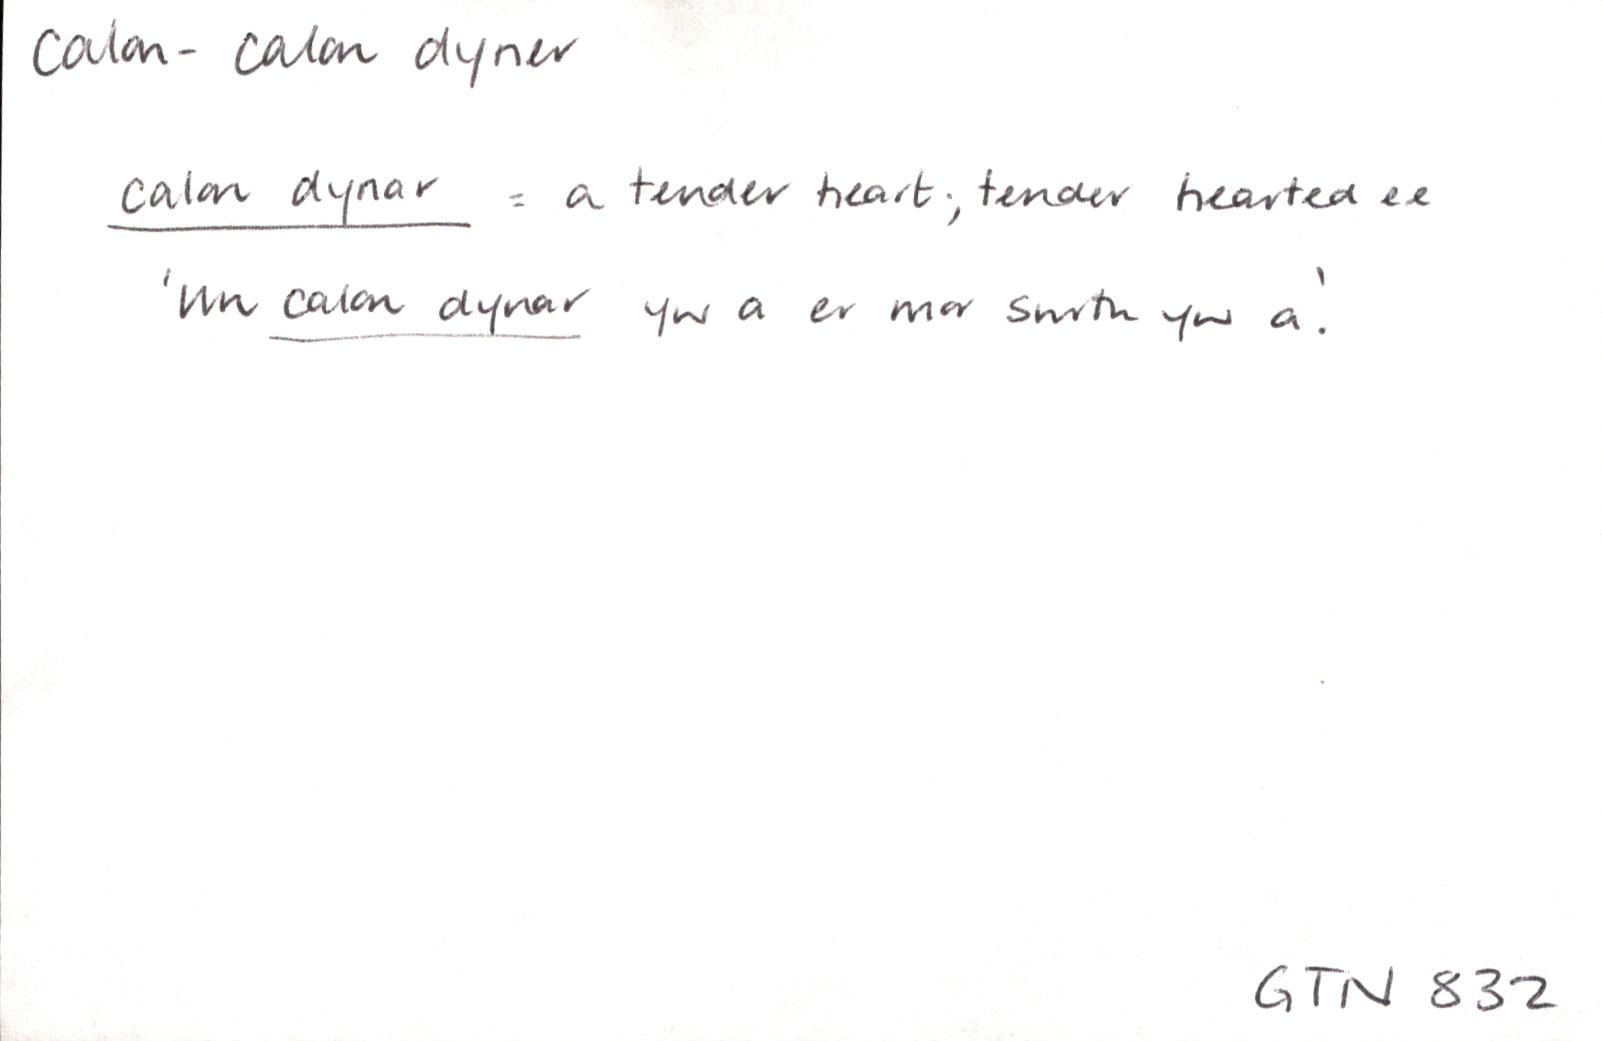 calon - calon dyner
calon dynar = a tender heart; tender hearted ee
'Un calon dynar yw a er mor swrth yw a'.
GTN 832